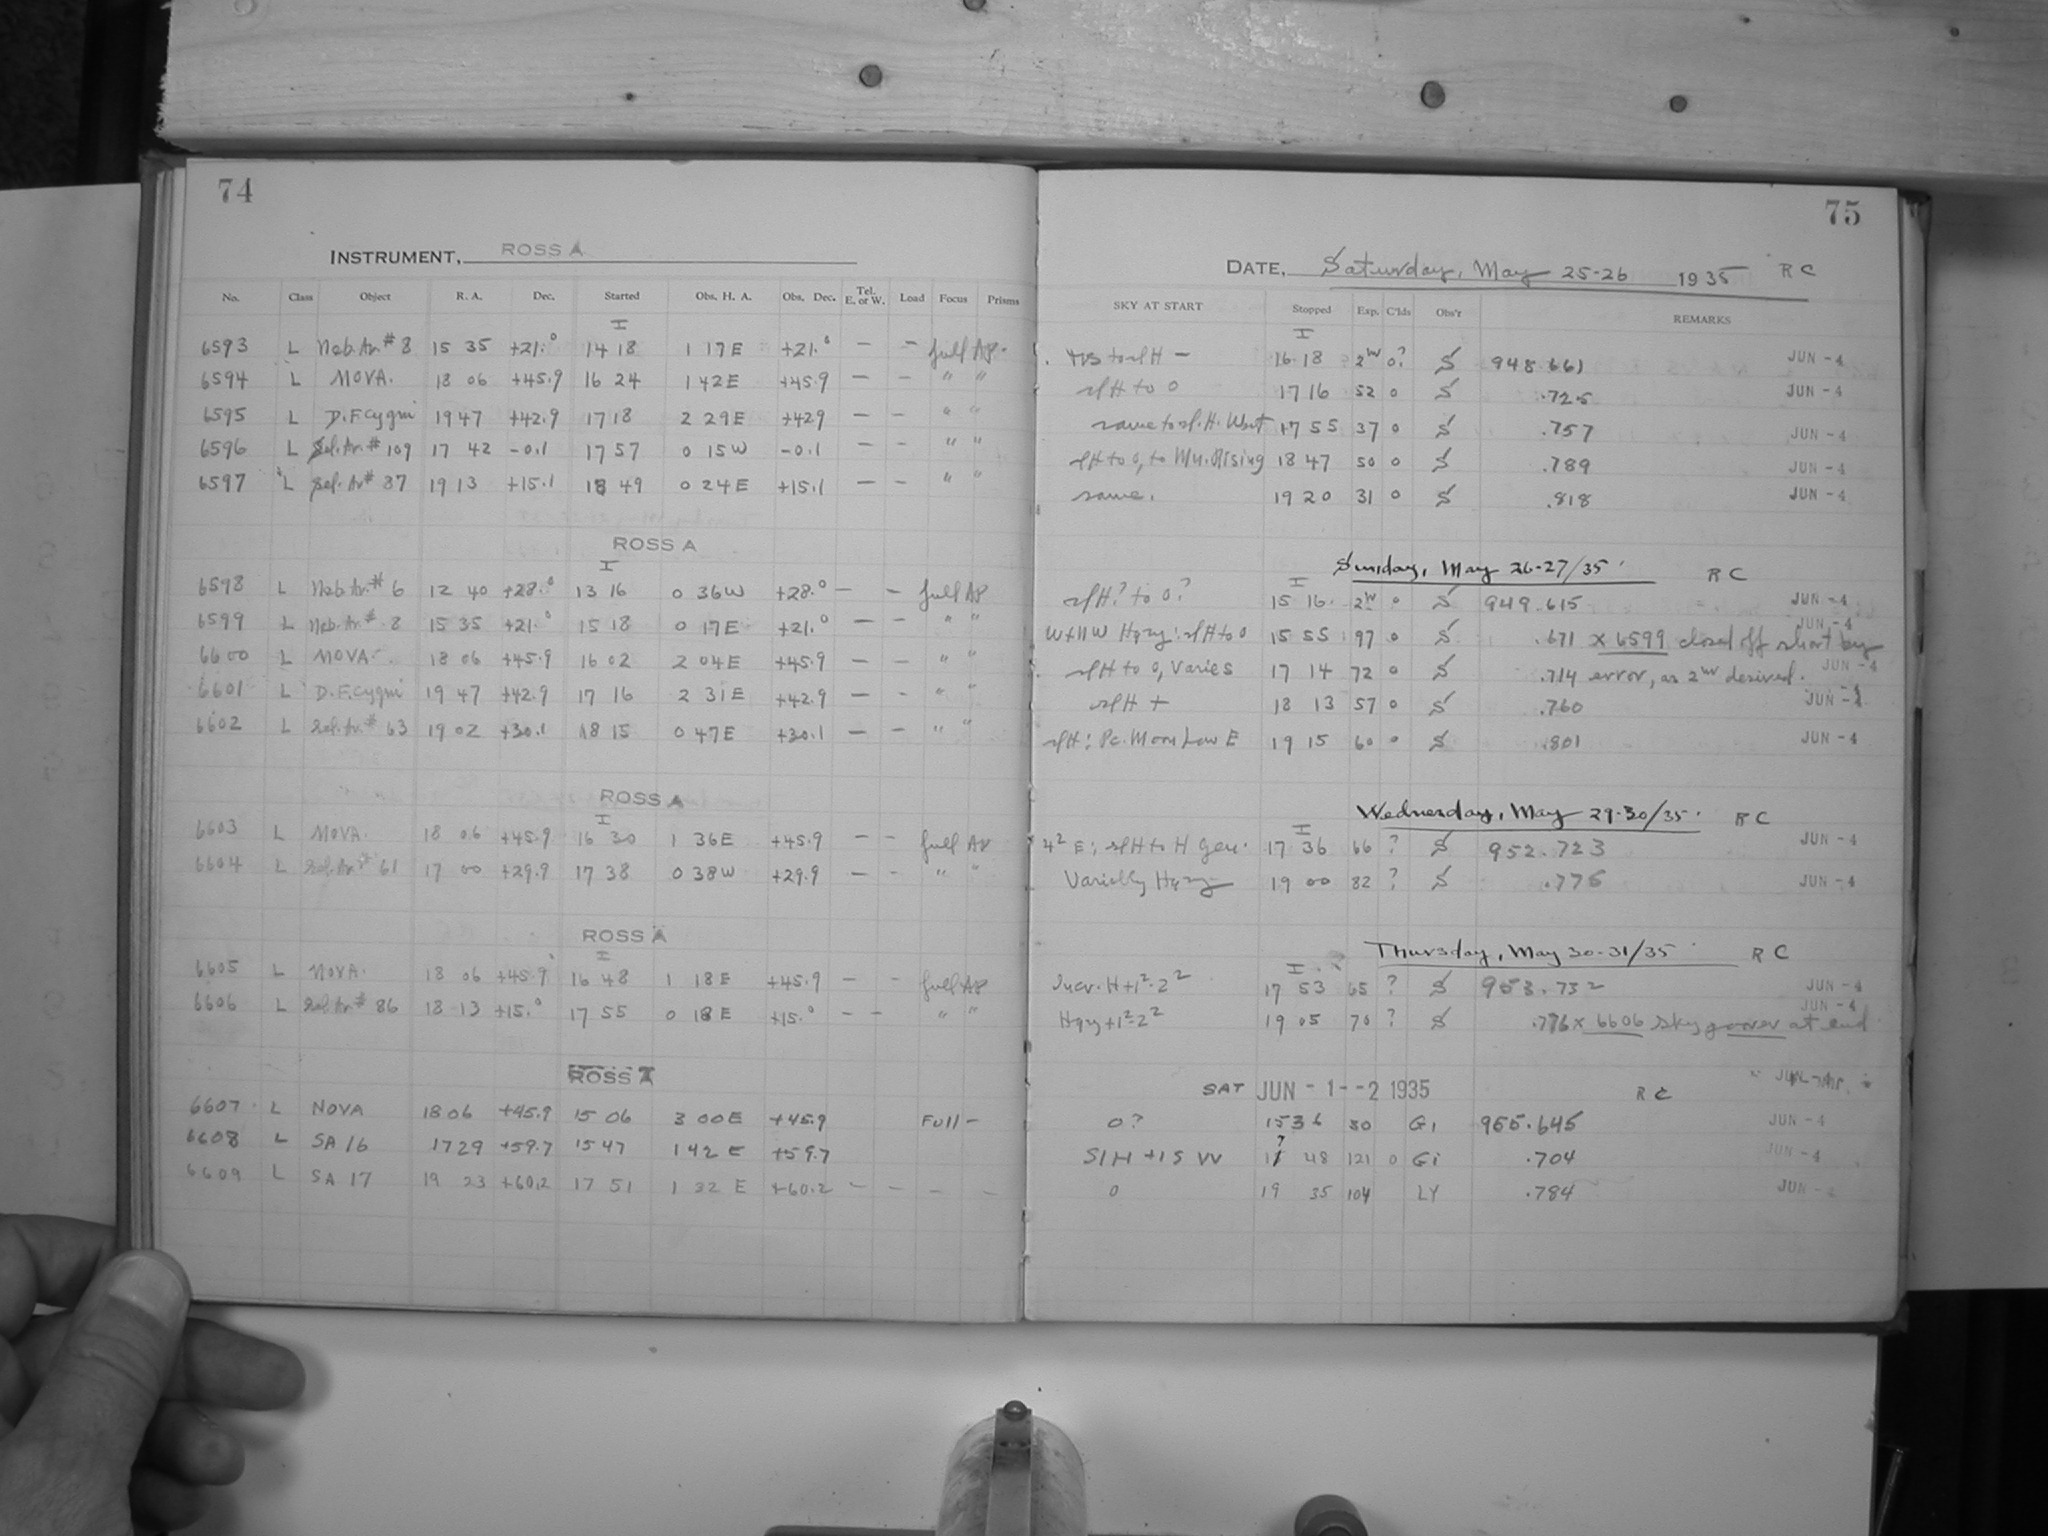 74
INSTRUMENT, ROSS A
No. Class Object R. A. Dec. Started Obs. H. A. Obs. Dec. Tel. E. or W. Load Focus Prisms
I
6593 L Neb. Ar. # 8 15 35 +21.0 14 18 1 17 E +21.0 — — full Ap.
6594 L NOVA. 18 06 +45.9 16 24 1 42 E +45.9 — — " "
6595 L D.F. Cygni 19 47 +42.9 17 18 2 29 E +42.9 — — " "
6596 L Sel. Ar. # 109 17 42 -0.1 17 57 0 15 W -0.1 — — " "
6597 L Sel. Ar # 87 19 13 +15.1 18 49 0 24 E +15.1 — — " "
ROSS A
I
6598 L Neb. Ar. # 6 12 40 +28.0 13 16 0 36 W +28.0 — — full Ap
6599 L Neb. Ar. # 8 15 35 +21.0 15 18 0 17 E +21.0 — — " "
6600 L NOVA. 18 06 +45.9 16 02 2 04 E +45.9 — — " "
6601 L D.F. Cygni 19 47 +42.9 17 16 2 31 E +42.9 — — " "
6602 L Sel. Ar. # 63 19 02 +30.1 18 15 0 47 E +30.1 — — " "
ROSS A
I
6603 L NOVA. 18 06 +45.9 16 30 1 36 E +45.9 — — full Ap
6604 L Sel. Ar. # 61 17 00 +29.9 17 38 0 38 W +29.9 — — " "
ROSS A
I
6605 L NOVA. 18 06 +45.9 16 48 1 18 E +45.9 — — full Ap
6606 L Sel. Ar. # 86 18 13 +15.0 17 55 0 18 E +15.0 — — " "
ROSS A
6607 L NOVA 18 06 +45.9 15 06 3 00 E +45.9 Full —
6608 L SA 16 17 29 +59.7 15 47 1 42 E +59.7
6609 L SA 17 19 23 +60.2 17 51 1 32 E +60.2 — — — —
75
DATE, Saturday, May 25-26 1935 R C
SKY AT START Stopped Exp. C'lds Obs'r REMARKS
I
to slH — 16 18 2w 0? S 948.661 JUN -4
slH to 0 17 16 52 0 S .725 JUN -4
same to sl. H. West 17 55 37 0 S .757 JUN -4
slH to 0, to Mn. Rising 18 47 50 0 S .789 JUN -4
same. 19 20 31 0 S .818 JUN -4
Sunday, May 26-27/35 R C
I
slH? to 0? 15 16 2w 0 S 949.615 JUN -4
W+NW Hazy: slH to 0 15 55 97 0 S .671 x 6599 closed off short by JUN -4
slH to 0, Varies 17 14 72 0 S .714 error, as 2w desired. JUN -4
slH + 18 13 57 0 S .760 JUN -4
slH: Pc. Moon Low E 19 15 60 0 S .801 JUN -4
Wednesday, May 29-30/35 R C
I
42 E; slH to H gen. 17 36 66 ? S 952.723 JUN -4
Variably Hazy 19 00 82 ? S .775 JUN -4
Thursday, May 30-31/35 R C
I
Incr. H + 12-22 17 53 65 ? S 953.732 JUN -4
Hazy + 12-22 19 05 70 ? S .776 x 6606 sky poorer at end JUN -4
SAT JUN -1 --2 1935 R C
0? 15 36 30 Gi 955.645 JUN -4
Sl H + 1 S W 17 48 121 0 Gi .704 JUN -4
0 19 35 104 LY .784 JUN -4